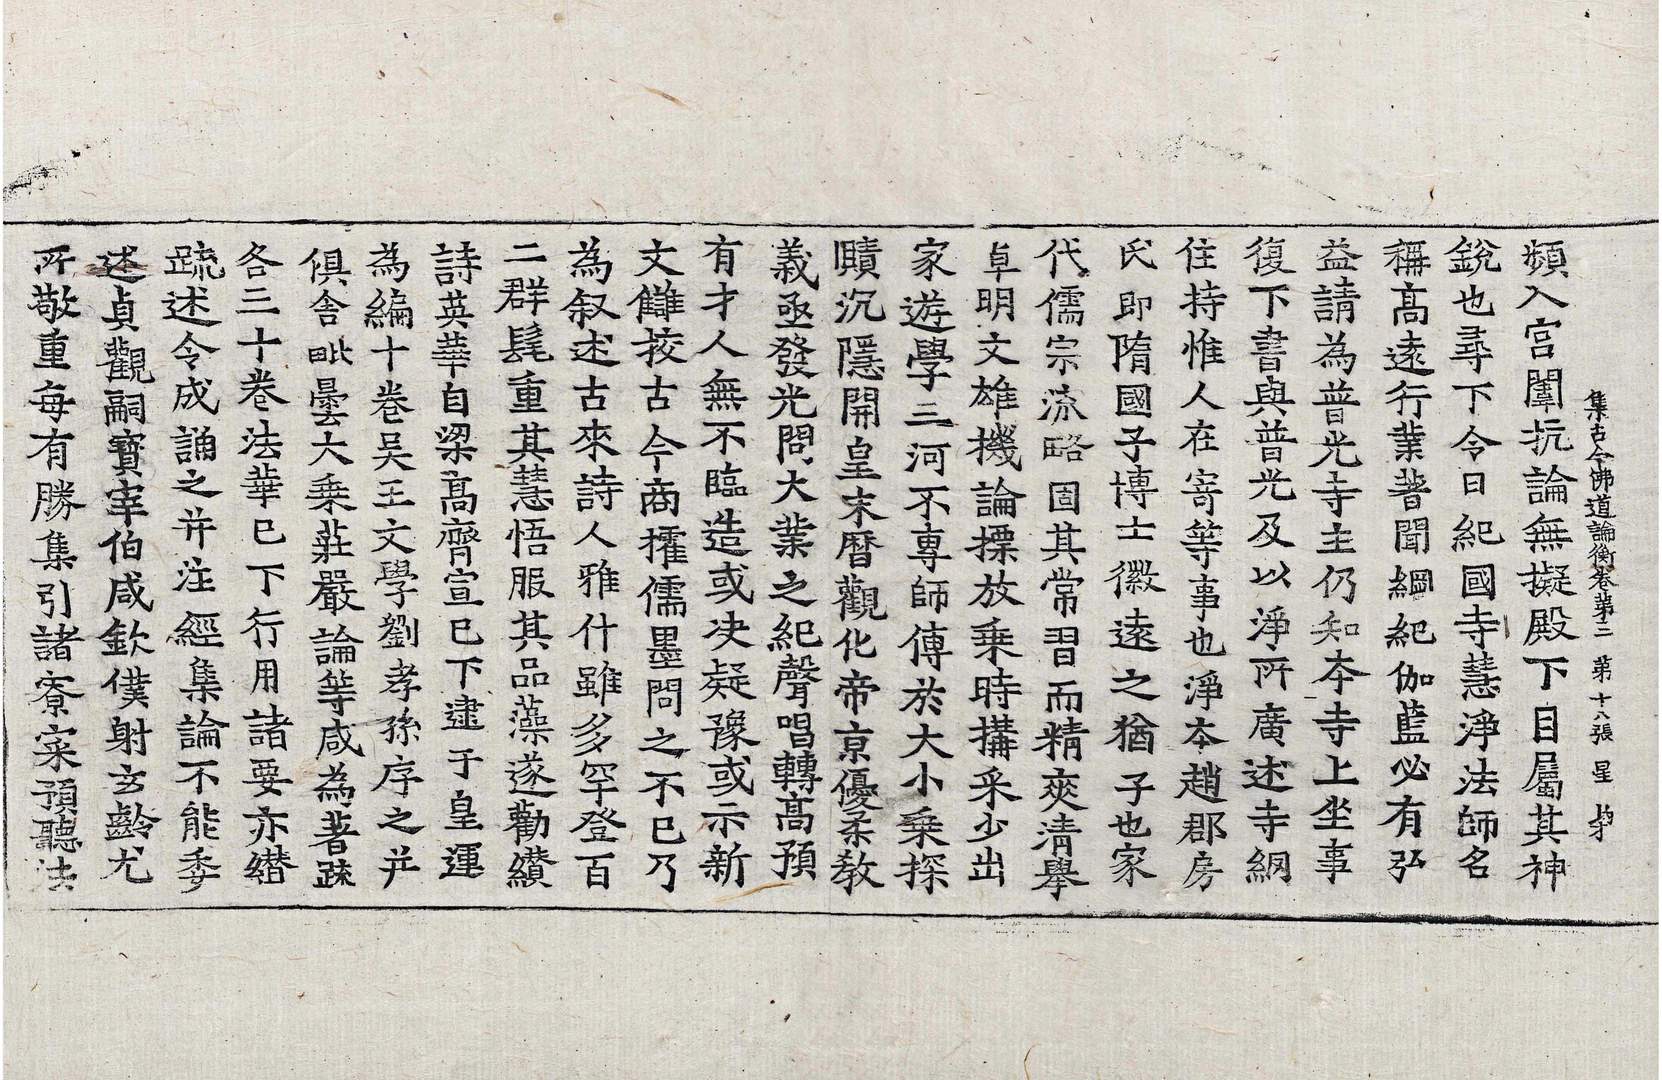 集古今佛道論衡卷第三 第十八張 星
頻入宮闈抗論無擬殿下目屬其神
銳也尋下令曰紀國寺慧淨法師名
稱高遠行業著聞綱紀伽藍必有弘
益請為普光寺主仍知本寺上坐事
復下書與普光及以淨所廣述寺網
住持惟人在寄等事也淨本趙郡房
氏即隋國子博士徽遠之猶子也家
代儒宗流略固其常習而精爽清舉
卓明文雄機論摽放乘時搆采少出
家遊學三河不專師傳於大小乘探
賾沉隱開皇末曆觀化帝京優柔敎
義亟發光問大業之紀聲唱轉高預
有才人無不臨造或决疑豫或示新
文讎挍古今商搉儒墨問之不已乃
為叙述古來詩人雅什雖多罕登百
二群髦重其慧悟服其品藻遂勸纘
詩英華自梁高齊宣已下逮于皇運
為編十卷吴王文學劉孝孫序之并
俱舍毗曇大乘莊嚴論等咸為著疏
各三十卷法華已下行用諸要亦纉
疏述令成誦之并注經集論不能委
述貞觀嗣寶宰伯咸欽僕射玄齡尤
所敬重每有勝集引諸寮寀預聽法